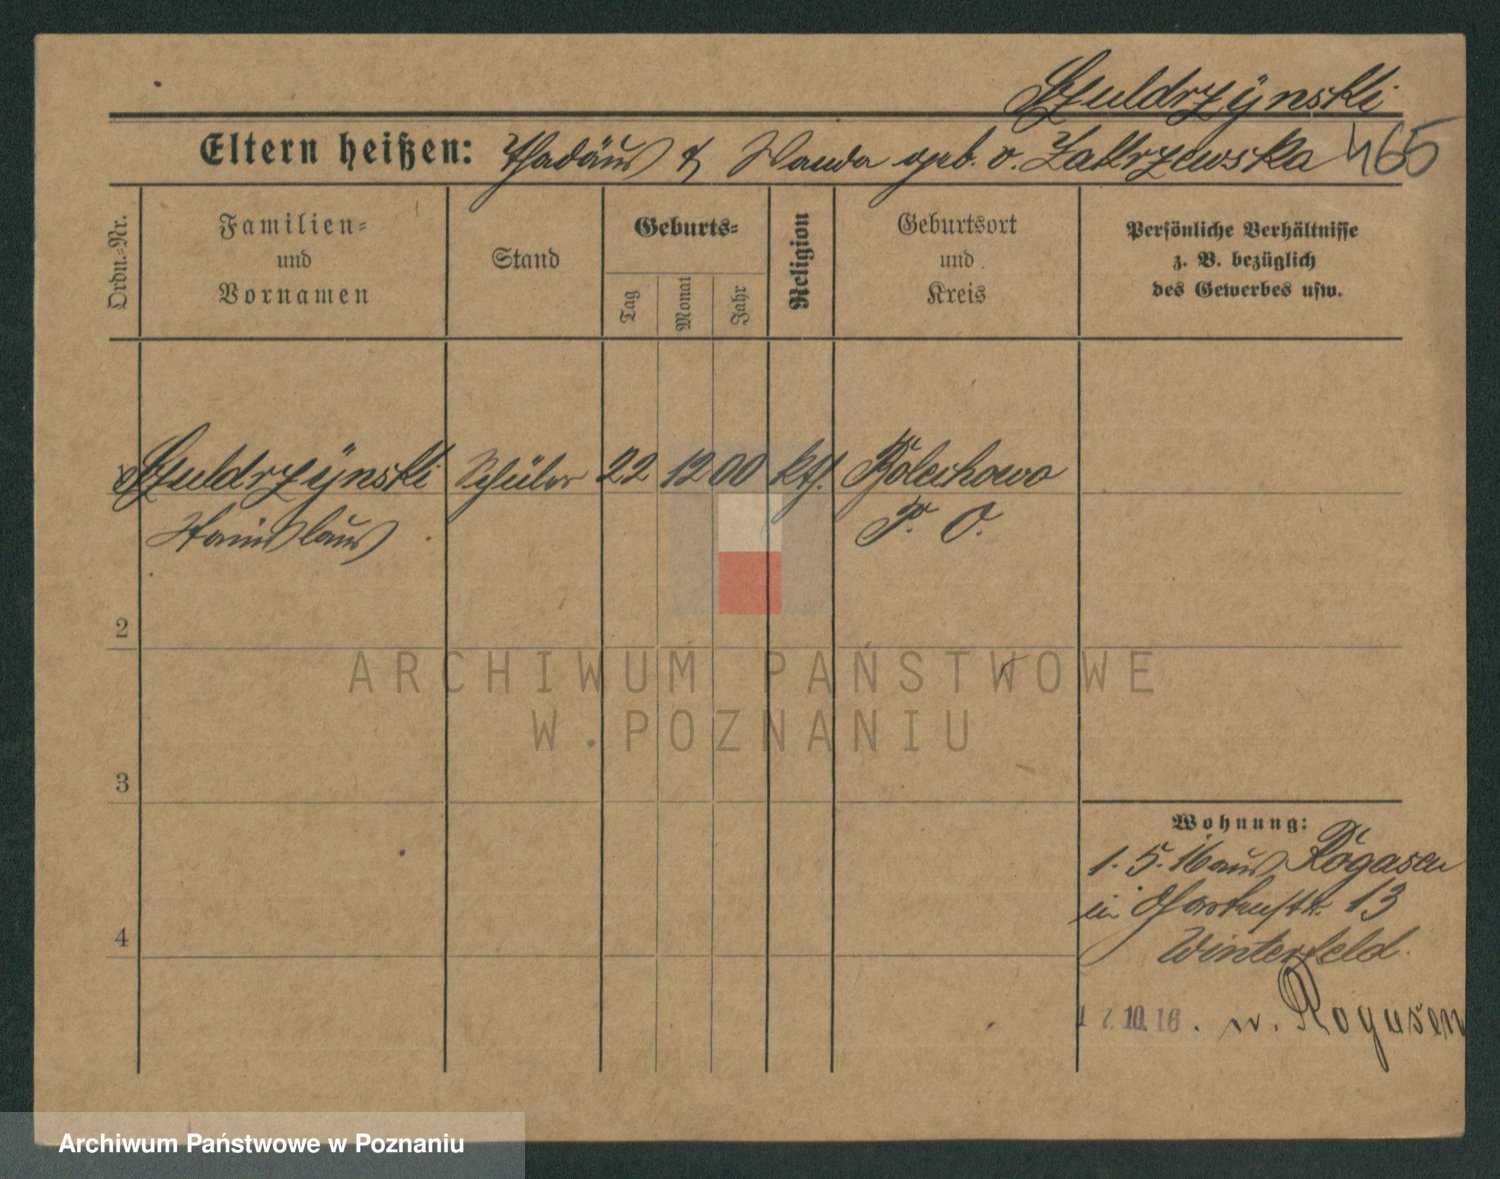 Szuldrzÿnski
Eltern heißen: Thadäus & Wanda geb. v. Zakrzewska 465
Ordn.-Nr.
Familien-
und
Vornamen
Stand
Geburts-
Tag
Monat
Jahr
Religion
Geburtsort
und
Kreis
Persönliche Verhältnisse
z. B. bezüglich
des Gewerbes usw.
Szuldrzÿnski Schüler 22 12 00 kth. Bolechowo
Stanislaus P. O.
2
ARCHIWUM PAŃSTWOWE
W POZNANIU
3
Wohnung:
1. 5. 16 aus Rogasen
in Gartenstr. 13
4
Winterfeld.
17.10.16. n. Rogasen
Archiwum Państwowe w Poznaniu